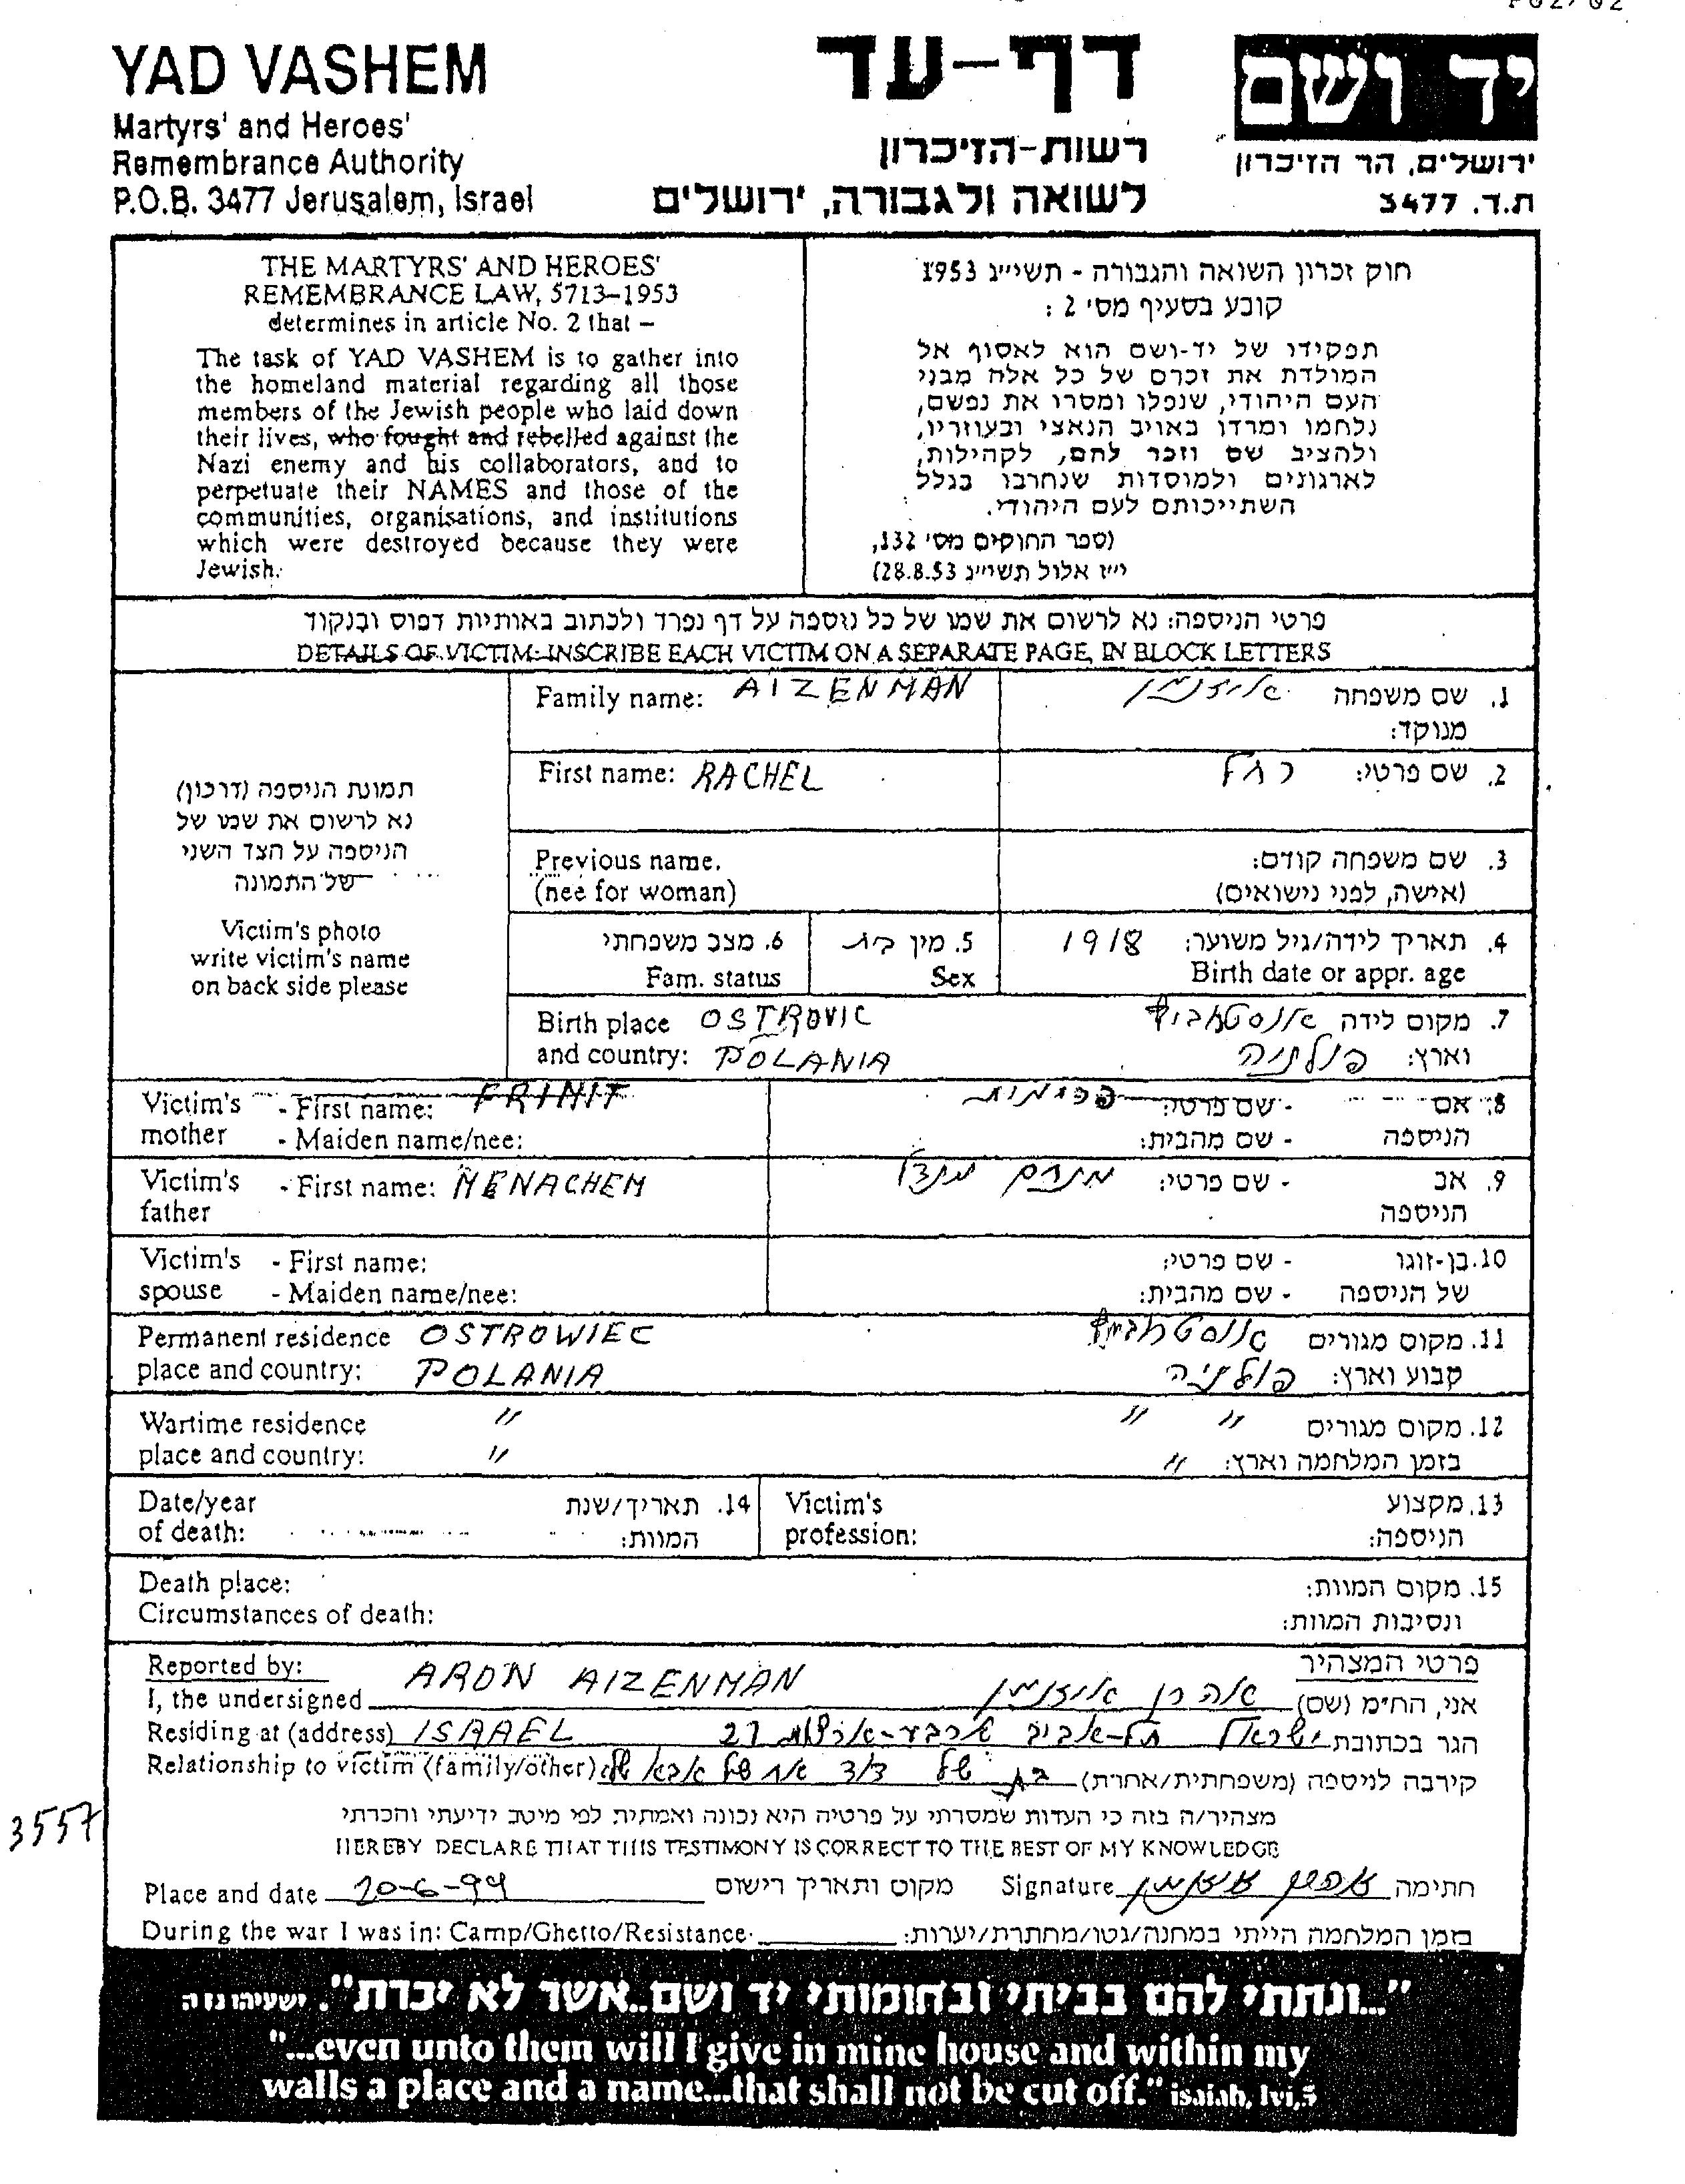 YAD VASHEM
Martyrs' and Heroes'
Remembrance Authority
P.O.B. 3477 Jerusalem, Israel
דף-עד
רשות-הזיכרון
לשואה ולגבורה, ירושלים
יד ושם
ירושלים, הר הזיכרון
ת.ד. 3477
THE MARTYRS' AND HEROES'
REMEMBRANCE LAW, 5713–1953
determines in article No. 2 that –
The task of YAD VASHEM is to gather into
the homeland material regarding all those
members of the Jewish people who laid down
their lives, who fought and rebelled against the
Nazi enemy and his collaborators, and to
perpetuate their NAMES and those of the
communities, organisations, and institutions
which were destroyed because they were
Jewish.
חוק זכרון השואה והגבורה - תשי״ג 1953
קובע בסעיף מס' 2 :
תפקידו של יד-ושם הוא לאסוף אל
המולדת את זכרם של כל אלה מבני
העם היהודי, שנפלו ומסרו את נפשם,
נלחמו ומרדו באויב הנאצי ובעוזריו,
ולהציב שם וזכר להם, לקהילות,
לארגונים ולמוסדות שנחרבו בגלל
השתייכותם לעם היהודי.
(ספר החוקים מס' 132,
י״ז אלול תשי״ג 28.8.53)
פרטי הניספה: נא לרשום את שמו של כל נוספה על דף נפרד ולכתוב באותיות דפוס ובנקוד
DETAILS OF VICTIM: INSCRIBE EACH VICTIM ON A SEPARATE PAGE, IN BLOCK LETTERS
תמונת הניספה (דרכון)
נא לרשום את שמו של
הניספה על הצד השני
של התמונה
Victim's photo
write victim's name
on back side please
Family name: AIZENMAN
1. שם משפחה איזנמן
מנוקד:
First name: RACHEL
2. שם פרטי: רחל
Previous name.
(nee for woman)
3. שם משפחה קודם:
(אישה, לפני נישואים)
6. מצב משפחתי
Fam. status
5. מין בת
Sex
4. תאריך לידה/גיל משוער: 1918
Birth date or appr. age
Birth place OSTROVIC
and country: POLANIA
7. מקום לידה
וארץ: פולניה
Victim's - First name: FRIMIT
mother - Maiden name/nee:
8. אם - שם פרטי: פרימית
הניספה - שם מהבית:
Victim's - First name: MENACHEM
father
9. אב - שם פרטי: מנחם מנדל
הניספה
Victim's - First name:
spouse - Maiden name/nee:
10. בן-זוגו - שם פרטי:
של הניספה - שם מהבית:
Permanent residence OSTROWIEC
place and country: POLANIA
11. מקום מגורים
קבוע וארץ: פולניה
Wartime residence "
place and country: "
12. מקום מגורים " "
בזמן המלחמה וארץ: "
Date/year
of death:
14. תאריך/שנת
המוות:
Victim's
profession:
13. מקצוע
הניספה:
Death place:
Circumstances of death:
15. מקום המוות:
ונסיבות המוות:
Reported by:
פרטי המצהיר
I, the undersigned ARON AIZENMAN
אני, הח״מ (שם) אהרן איזנמן
Residing at (address) ISRAEL
הגר בכתובת ישראל תל-אביב ארבע-ארצות 27
Relationship to victim (family/other)
קירבה לניספה (משפחתית/אחרת) בת של דוד אח של אבא שלי
מצהיר/ה בזה כי העדות שמסרתי על פרטיה היא נכונה ואמתית לפי מיטב ידיעתי והכרתי
HEREBY DECLARE THAT THIS TESTIMONY IS CORRECT TO THE BEST OF MY KNOWLEDGE
3557
Place and date 20-6-99 מקום ותאריך רישום
Signature אהרן איזנמן חתימה
During the war I was in: Camp/Ghetto/Resistance
בזמן המלחמה הייתי במחנה/גטו/מחתרת/יערות:
"...ונתתי להם בביתי ובחומותי יד ושם..אשר לא יכרת". ישעיהו נו ה
"...even unto them will I give in mine house and within my
walls a place and a name...that shall not be cut off." isaiah, lvi,5